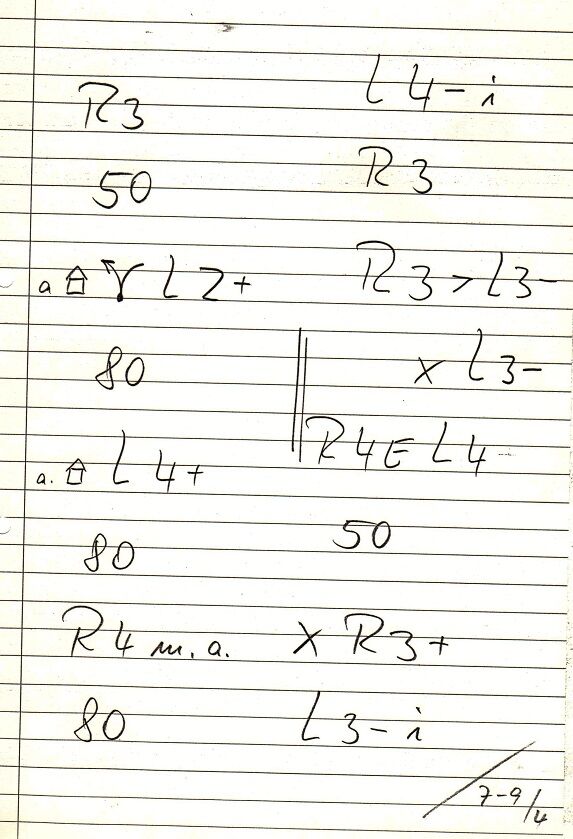 R3
50
a L2+
80
a. L4+
80
R4 m.a.
80
L4-i
R3
R3>L3-
x L3-
R4 E L4
50
X R3+
L3-i
7-9/4